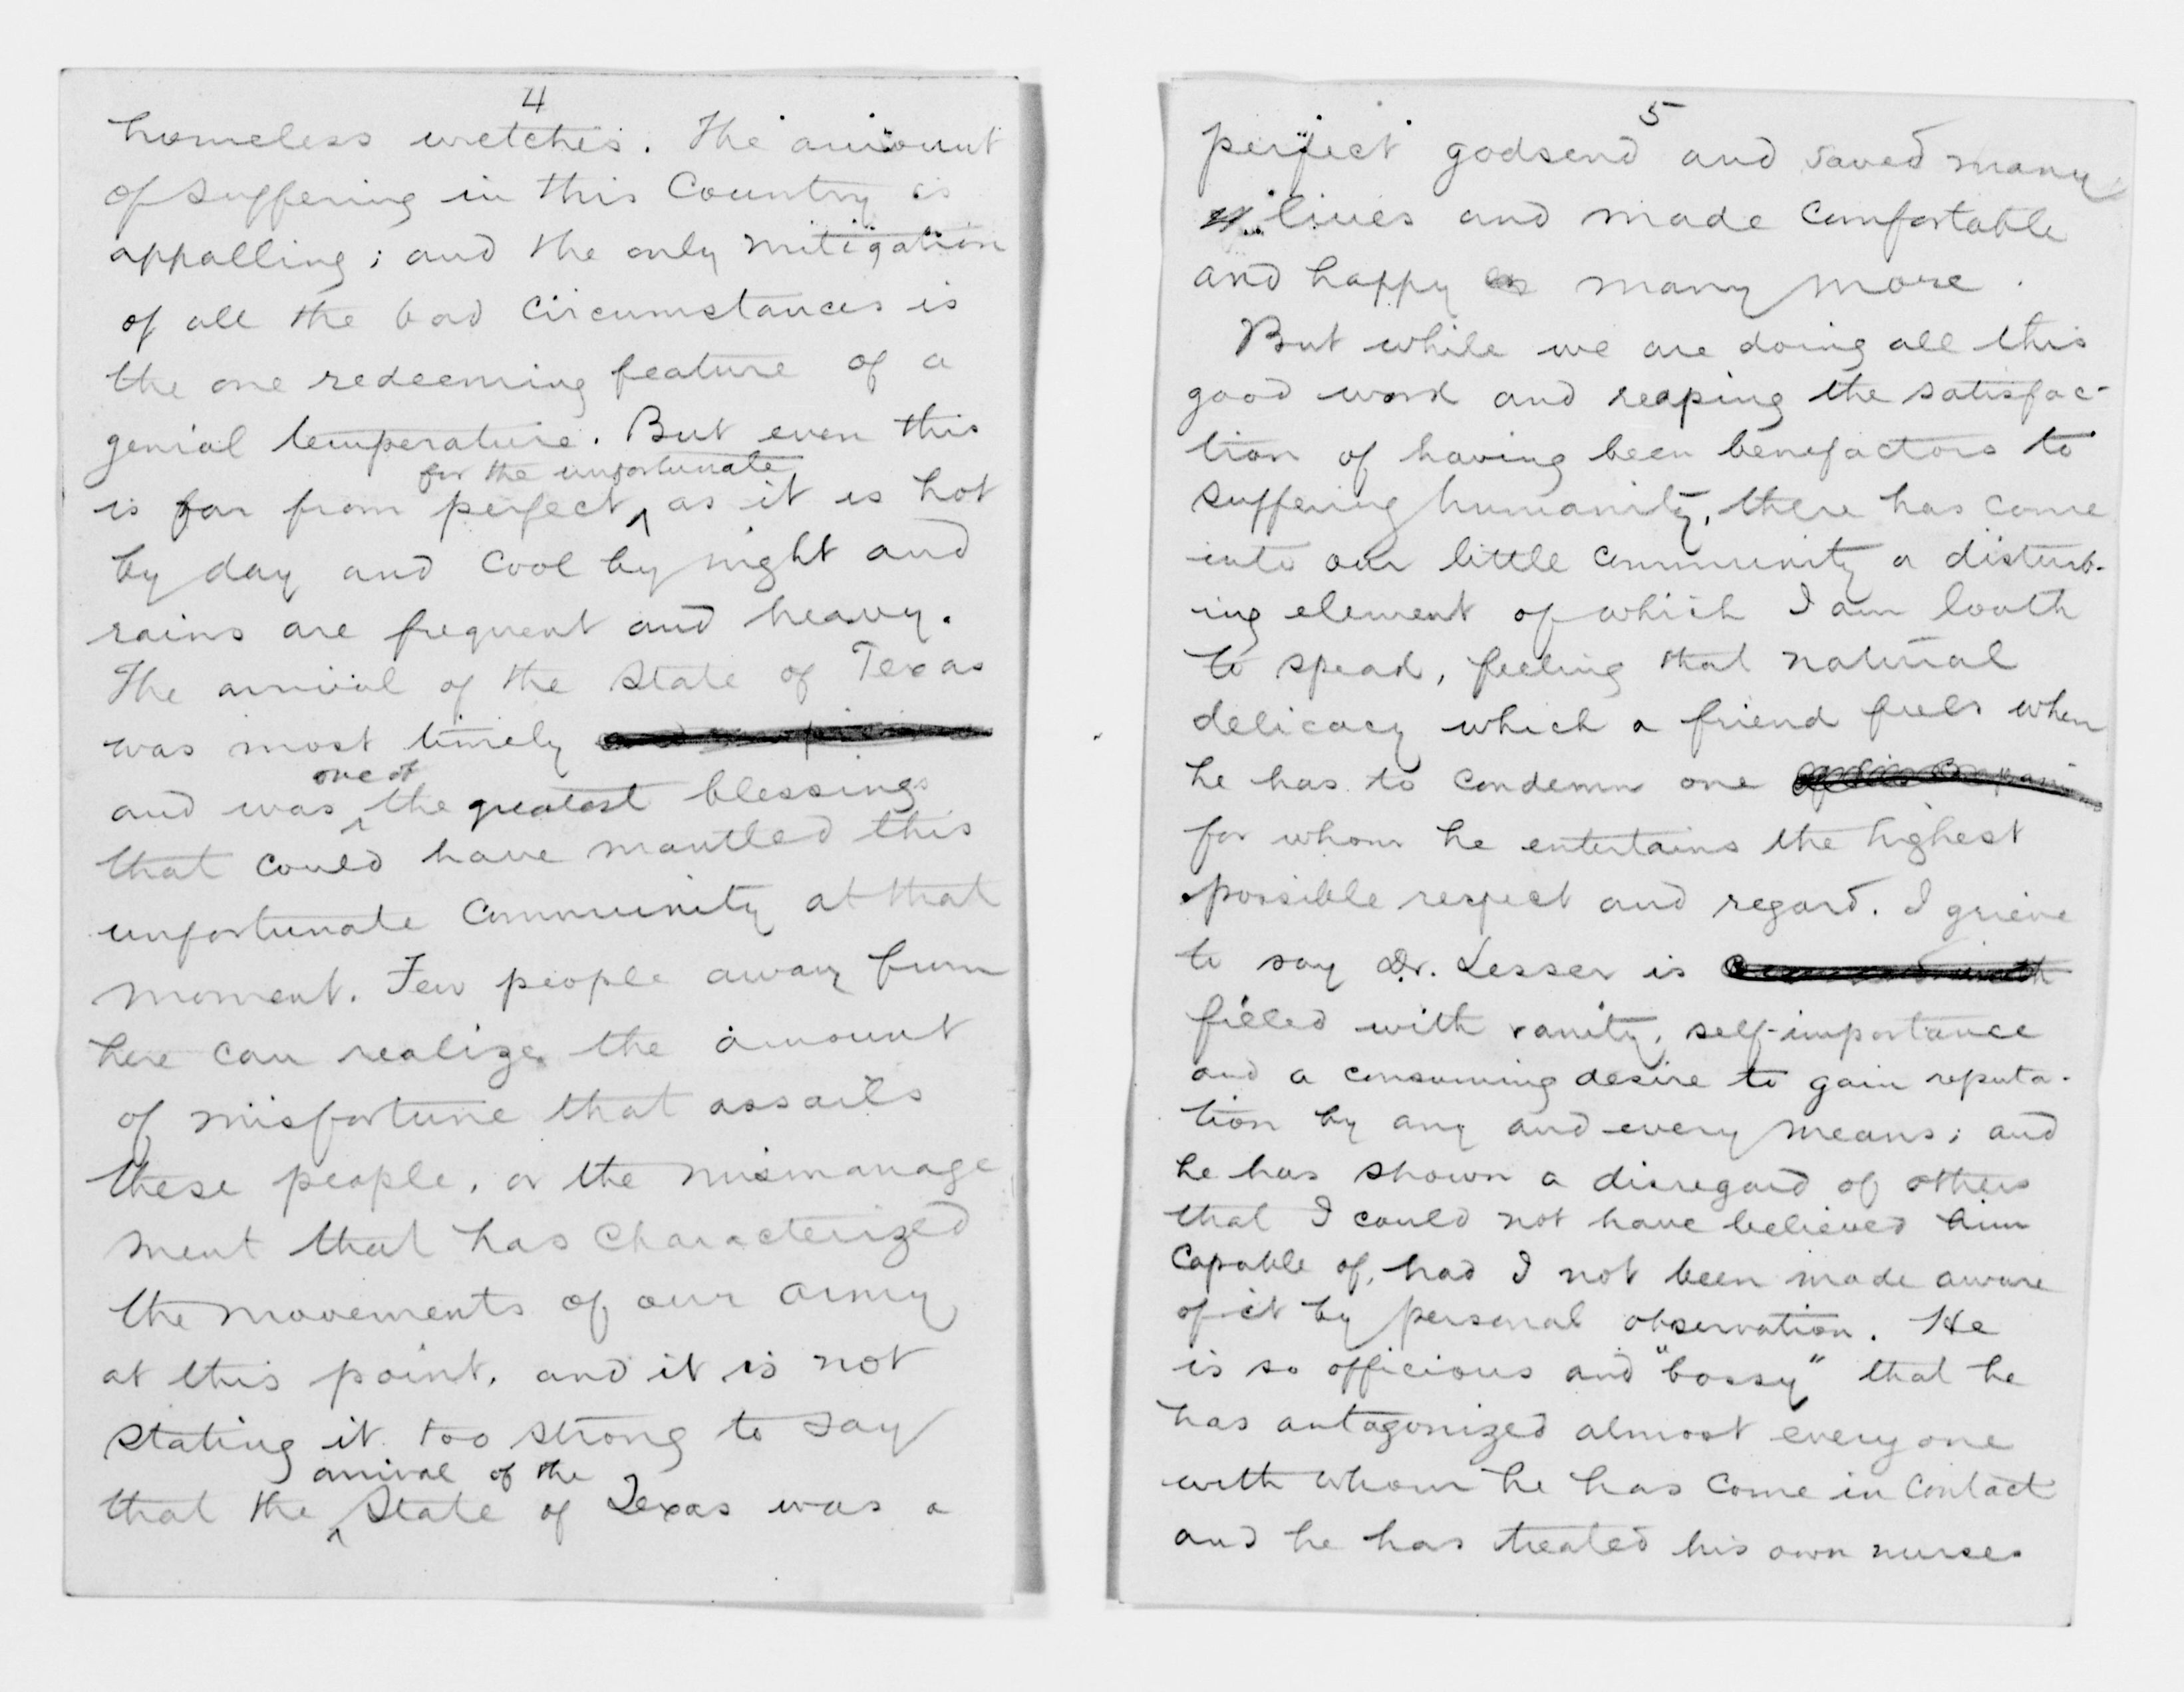 4
homeless wretches. The amount
of suffering in this Country is
appalling; and the only mitigation
of all the bad circumstances is
the one redeeming feature of a
genial temperature. But even this
for the unfortunate,
is far from perfect ^ as it is hot
by day and cool by night and
rains are frequent and heavy.
The arrival of the State of Texas
was most timely
one of
and was ^ the greatest blessings
that could have mantled this
unfortunate community at that
moment. Few people away from
here can realize the amount
of misfortune that assails
these people, or the mismanage
ment that has characterized
the movements of our army
at this point, and it is not
stating it too strong to say
arrival of the
that the ^ State of Texas was a
5
perfect godsend and saved many
lives and made comfortable
and happy many more.
But while we are doing all this
good work and reaping the satisfac-
tion of having been benefactors to
suffering humanity, there has come
into our little community a disturb-
ing element of which I am loath
to speak, feeling that natural
delicacy which a friend feels when
he has to condemn one
for whom he entertains the highest
possible respect and regard. I grieve
to say Dr. Lesser is
filled with vanity, self-importance
and a consuming desire to gain reputa-
tion by any and every means; and
he has shown a disregard of others
that I could not have believed him
capable of, had I not been made aware
of it by personal observation. He
is so officious and "bossy" that he
has antagonized almost every one
with whom he has come in contact
and he has treated his own nurses